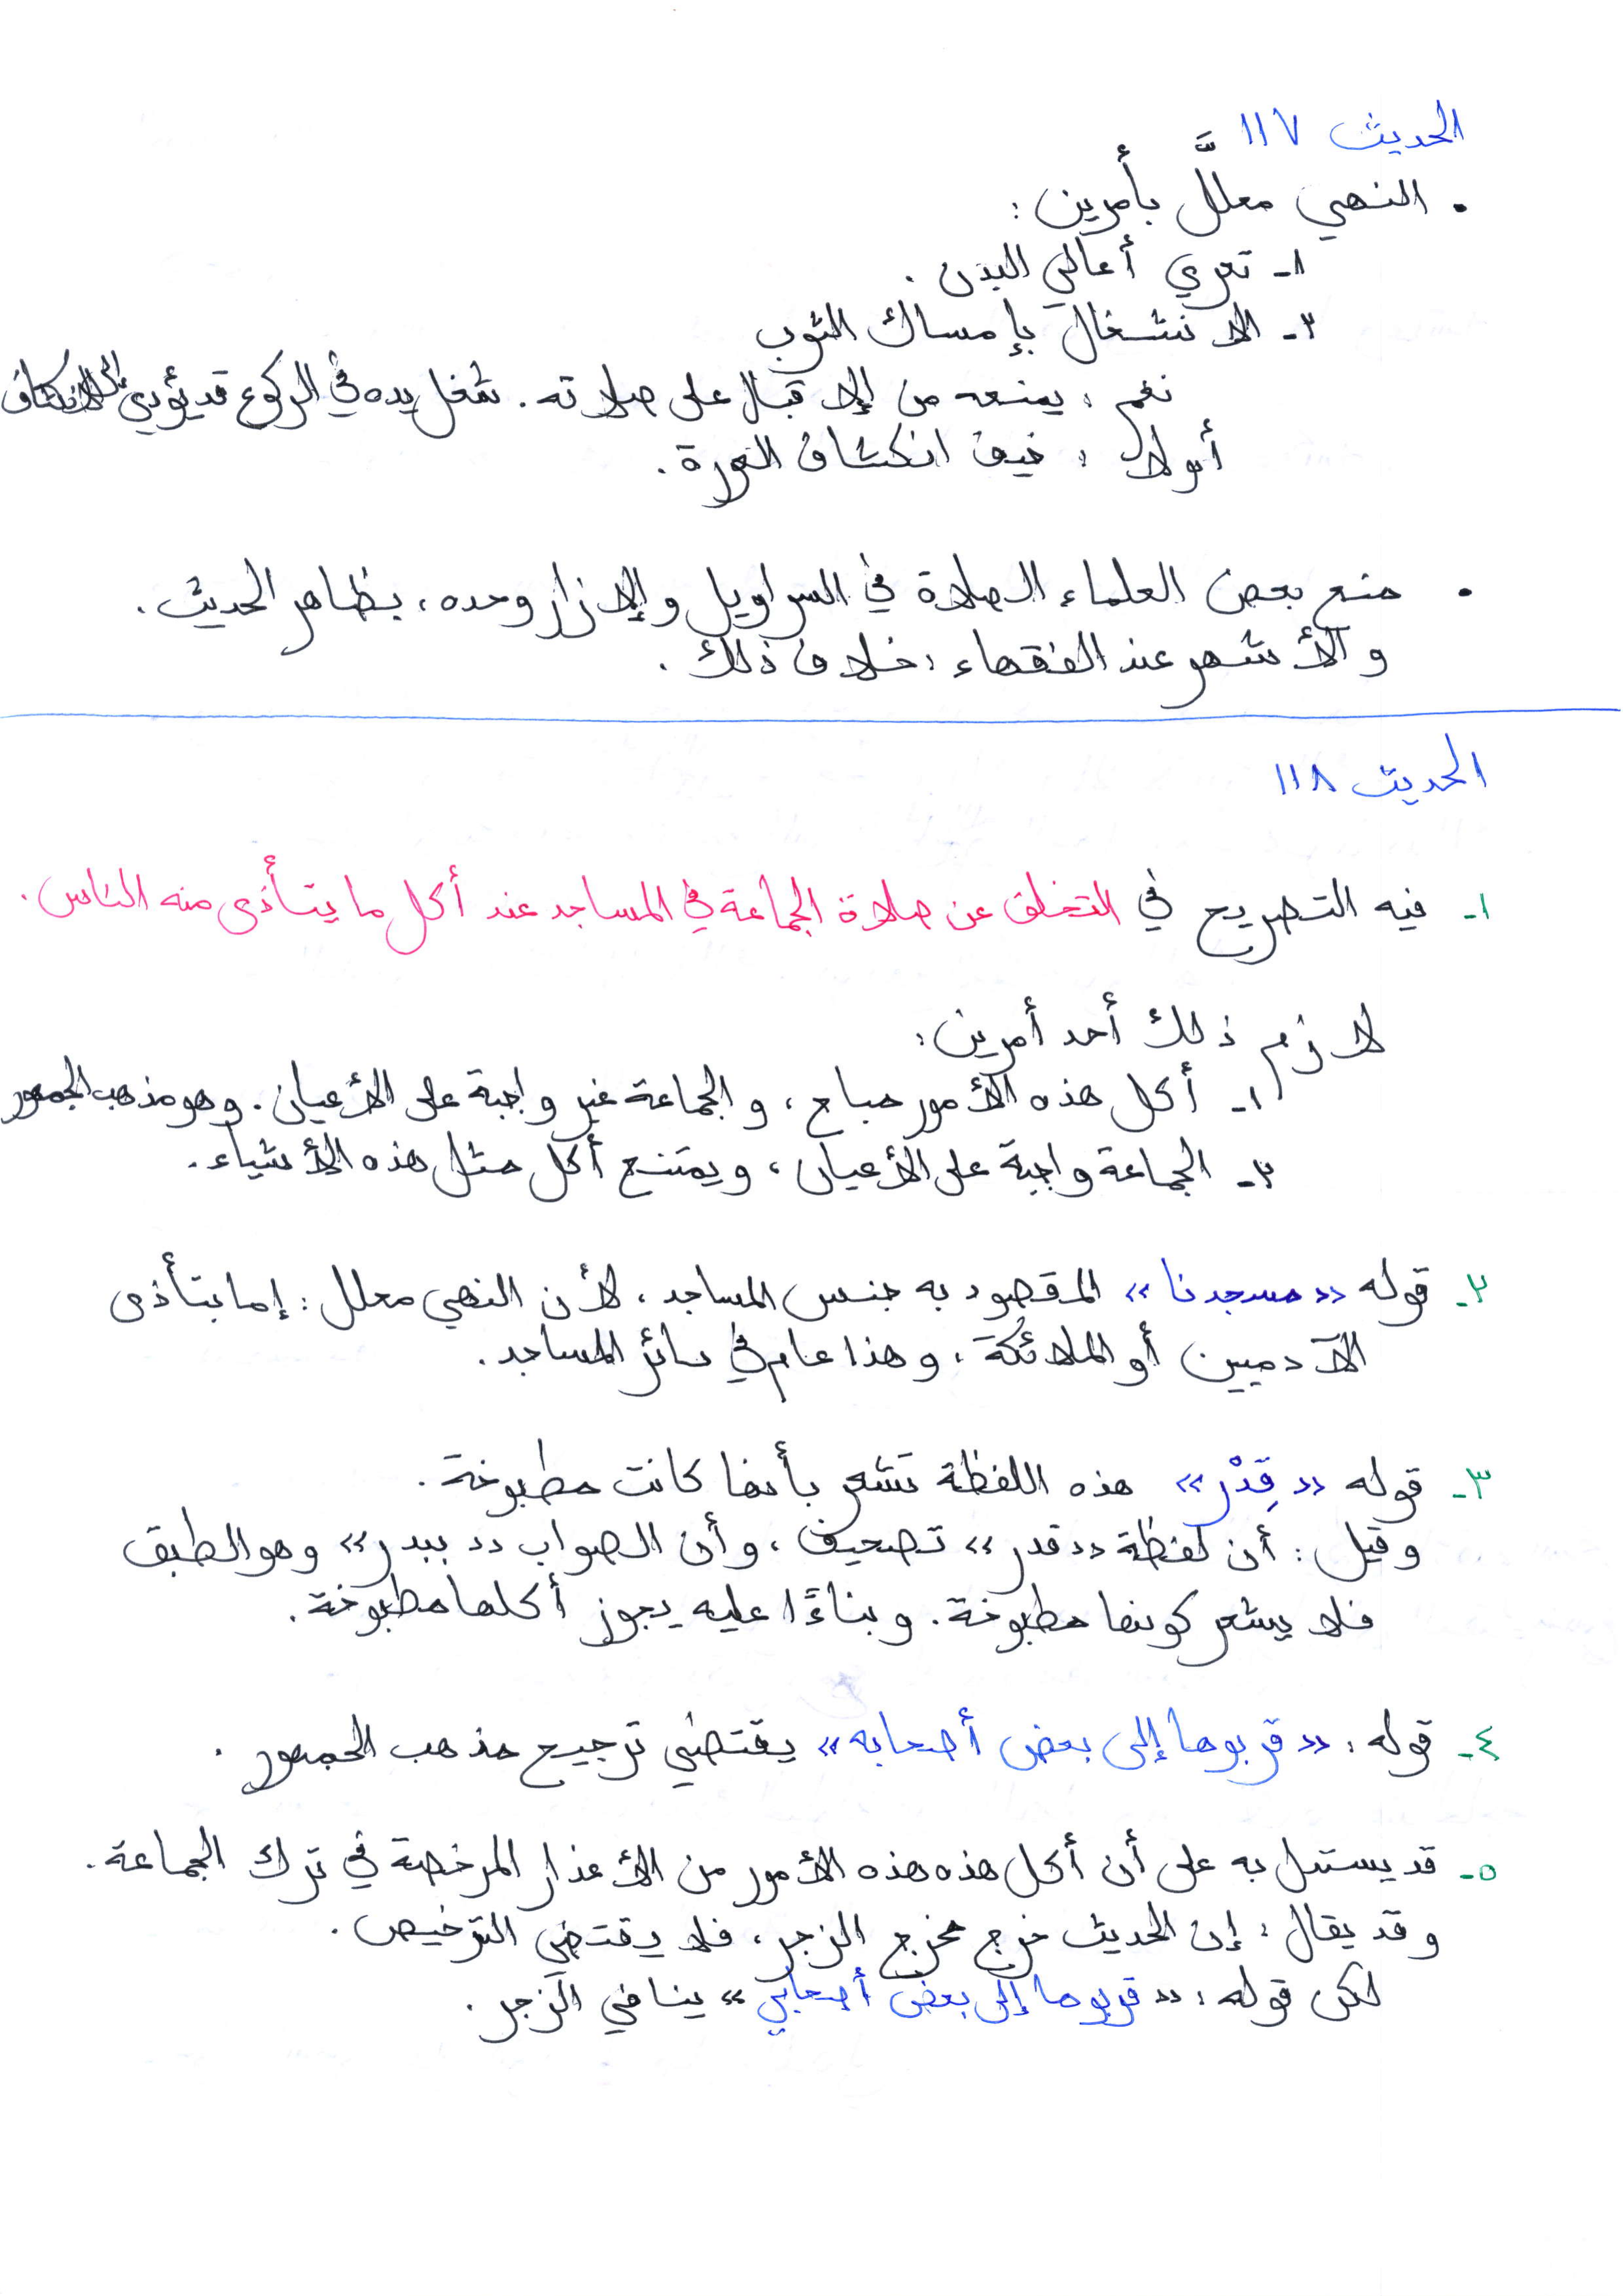 الحديث ١١٧
• النهي معلَّل بأمرين :
١- تعري أعالي البدن .
٢- الانشغال بإمساك الثوب
نعم : يمنعه من الإقبال على صلاته . شغل يده في الركوع قد يؤدي إلى الانكشاف
أو لا : خيف انكشاف العورة .
• منع بعض العلماء الصلاة في السراويل والإزار وحده ، بظاهر الحديث .
والأشهر عند الفقهاء : خلاف ذلك .
الحديث ١١٨
١- فيه التصريح في التخلف عن صلاة الجماعة في المساجد عند أكل ما يتأذى منه الناس .
لازم ذلك أحد أمرين :
١- أكل هذه الأمور مباح ، والجماعة غير واجبة على الأعيان . وهو مذهب الجمهور
٢- الجماعة واجبة على الأعيان ، ويمتنع أكل مثل هذه الأشياء .
٢- قوله «مسجدنا» المقصود به جنس المساجد ، لأن النهي معلل : إما بتأذى
الآدميين أو الملائكة ، وهذا عام في سائر المساجد .
٣- قوله «قِدْر» هذه اللفظة تشعر بأنها كانت مطبوخة .
وقيل : أن لفظة «قدر» تصحيف ، وأن الصواب «ببدر» وهو الطبق
فلا يشعر كونها مطبوخة . وبناءًا عليه يجوز أكلها مطبوخة .
٤- قوله : «قربوها إلى بعض أصحابه» يقتضي ترجيح مذهب الجمهور .
٥- قد يستدل به على أن أكل هذه هذه الأمور من الأعذار المرخصة في ترك الجماعة .
وقد يقال : إن الحديث خرج مخرج الزجر ، فلا يقتضي الترخيص .
لكن قوله : «قربوها إلى بعض أصحابي» ينافي الزجر .